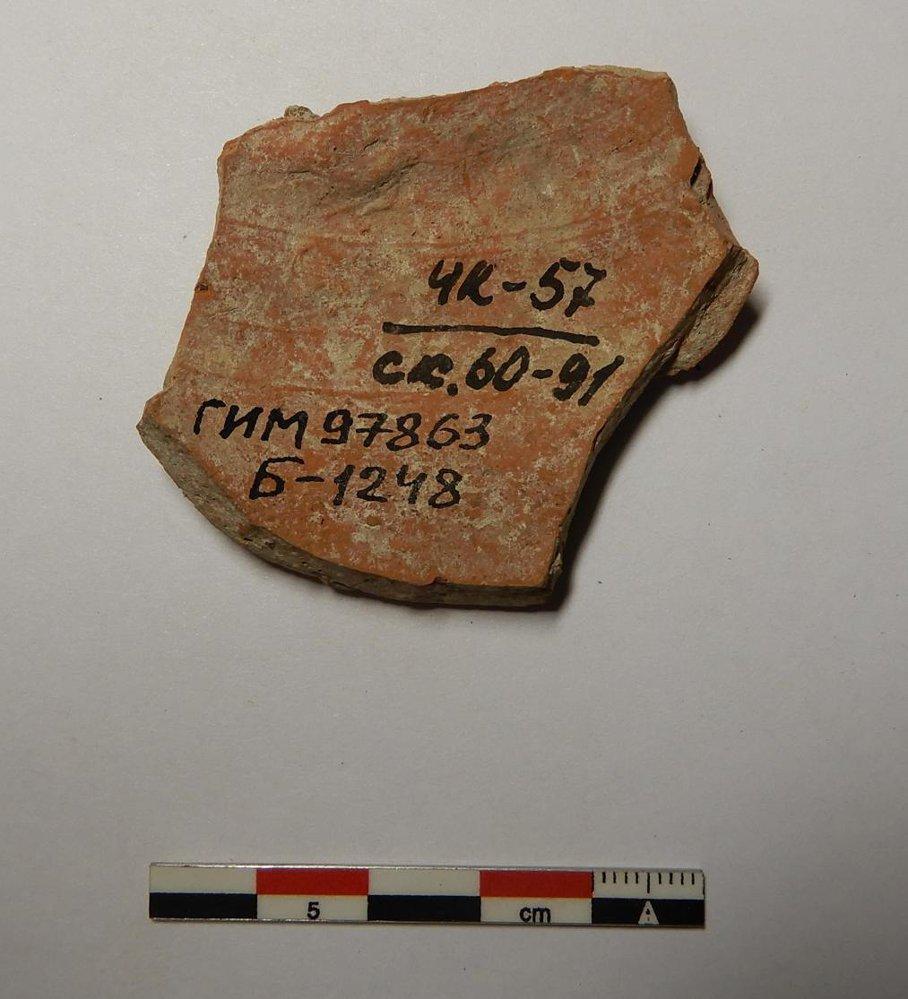 ЧК-57
ск.60-91
ГИМ 97863
Б-1248
5 cm